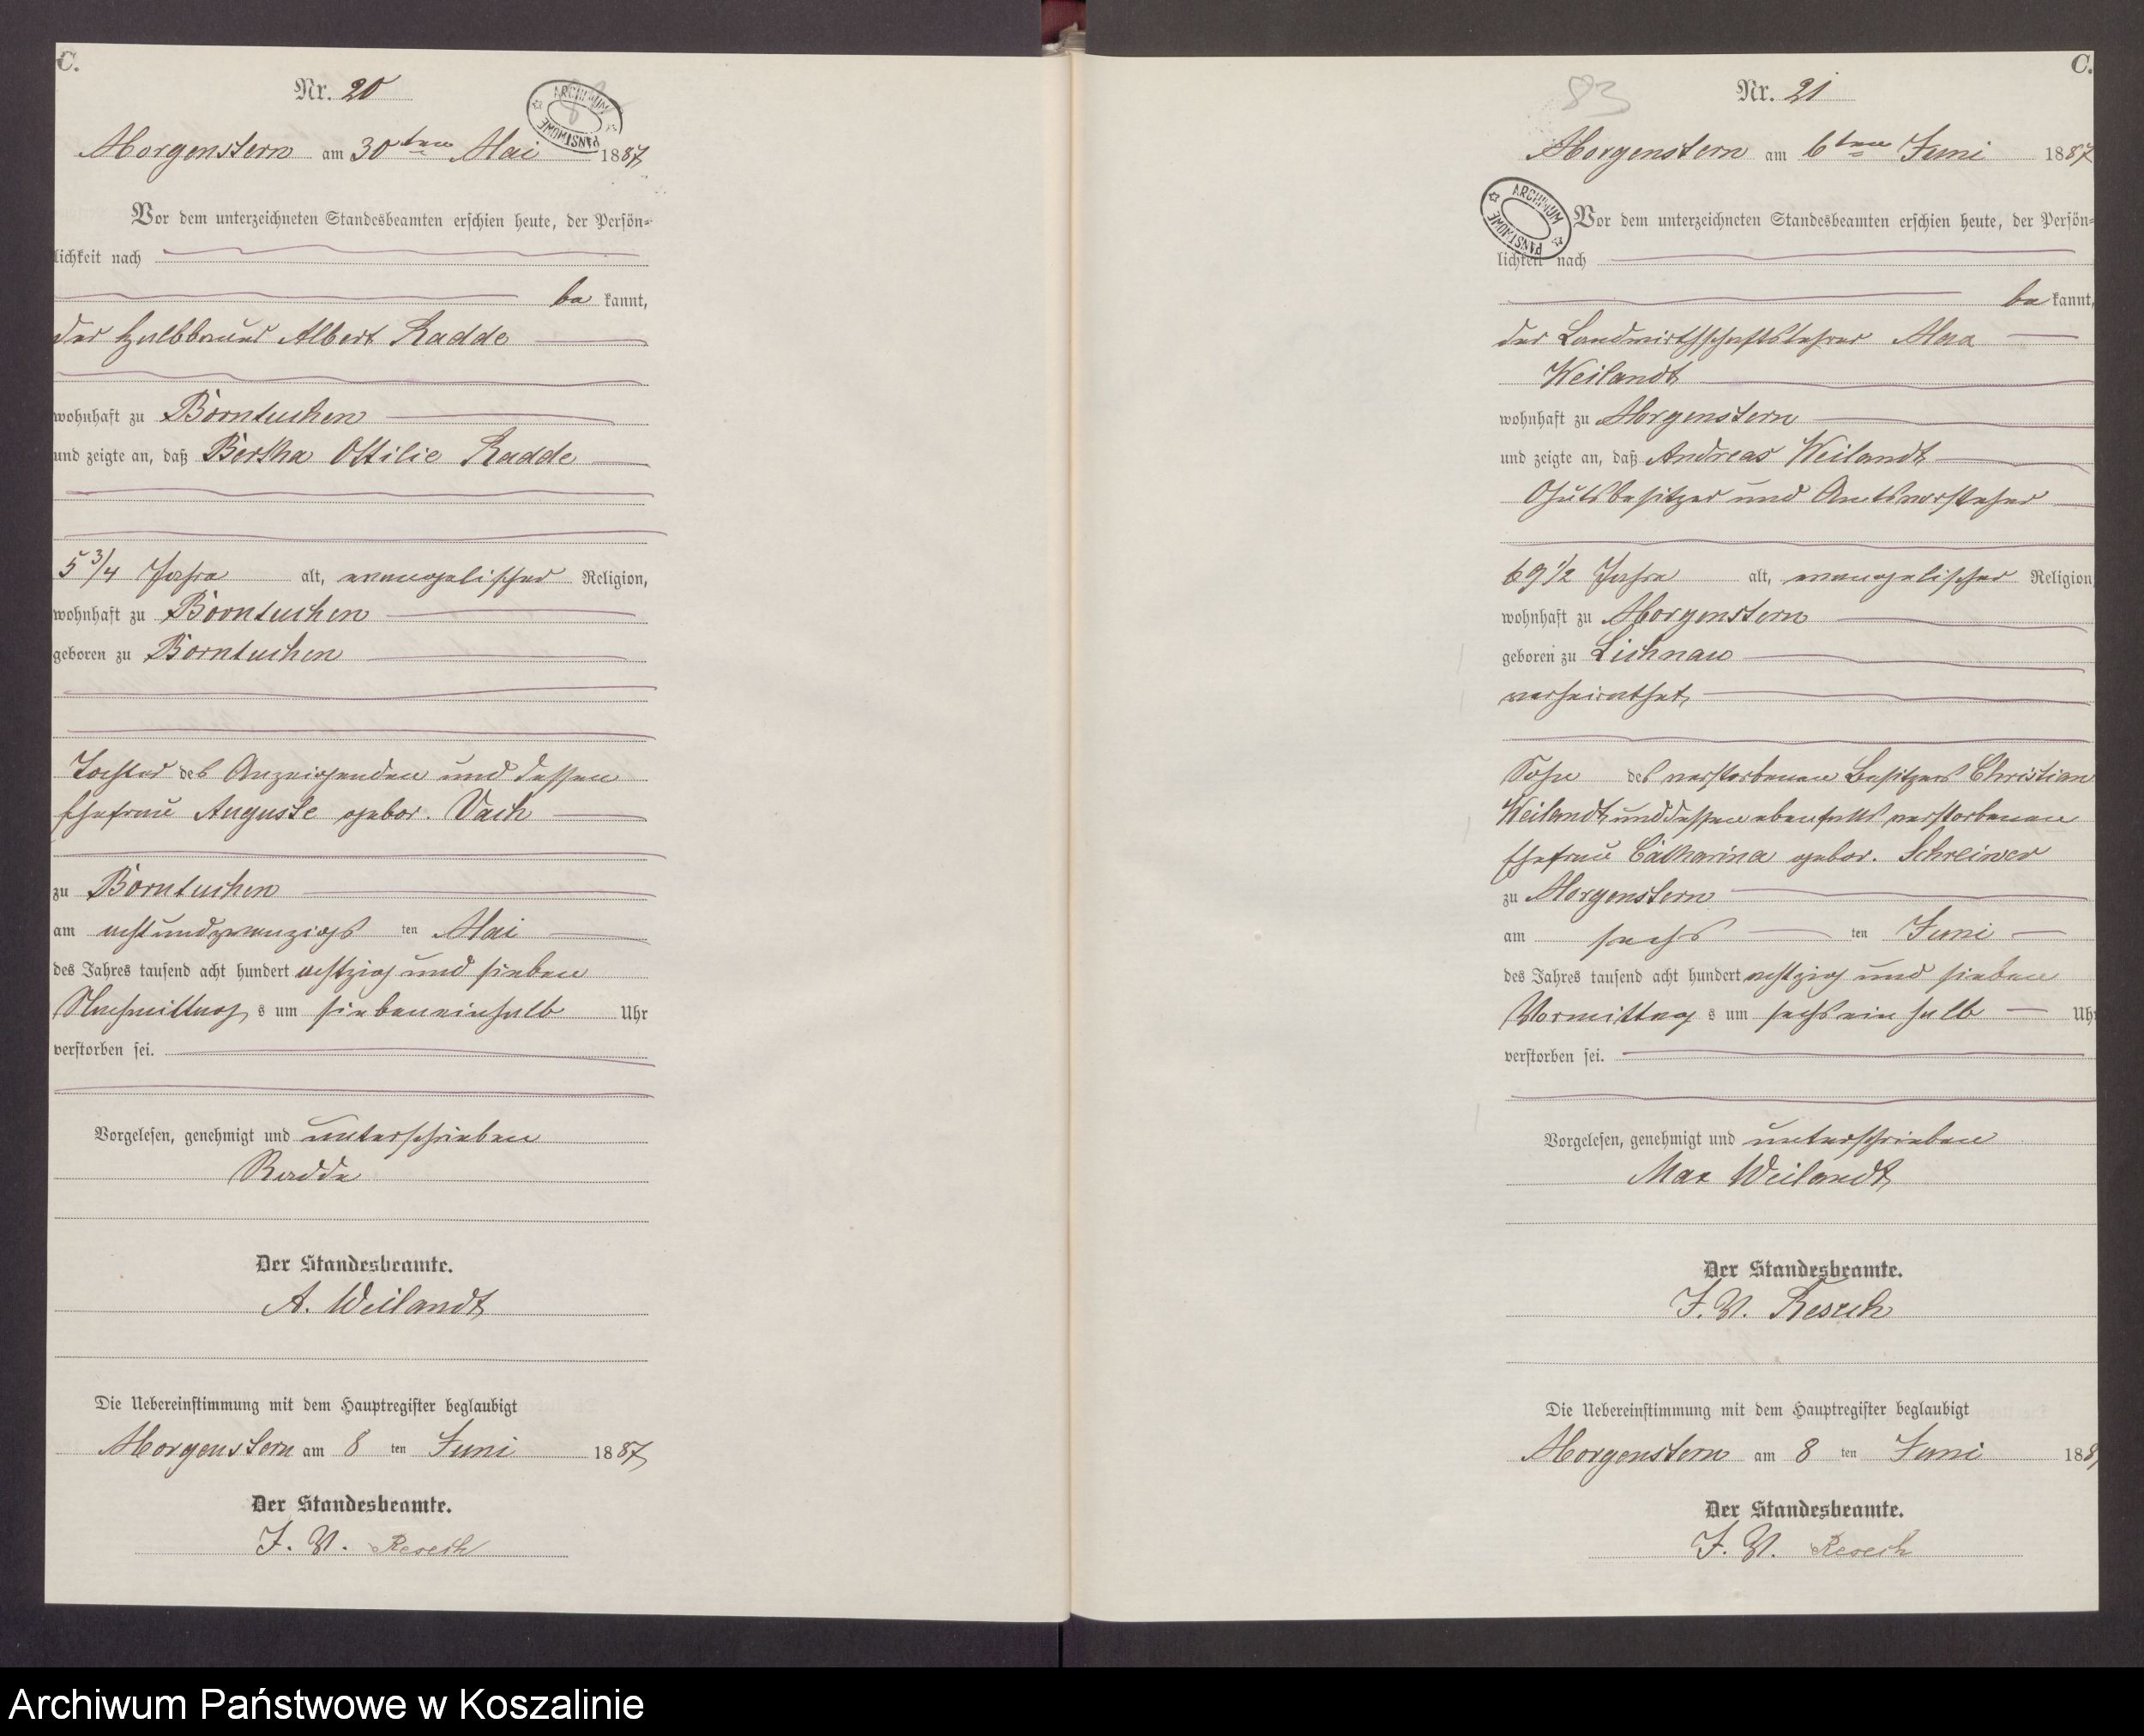 C.
Nr. 20
ARCHIWUM PAŃSTWOWE
Morgenstern am 30ten Mai 1887
Vor dem unterzeichneten Standesbeamten erschien heute, der Persön-
lichkeit nach
be kannt,
der Halbbauer Albert Radde
wohnhaft zu Borntuchen
und zeigte an, daß Bertha Ottilie Radde
5 3/4 Jahre alt, evangelischer Religion,
wohnhaft zu Borntuchen
geboren zu Borntuchen
Tochter des Anzeigenden und dessen
Ehefrau Auguste gebor. Vach
zu Borntuchen
am achtundzwanzigs ten Mai
des Jahres tausend acht hundert achtzig und sieben
Nachmittag s um siebeneinhalb Uhr
verstorben sei.
Vorgelesen, genehmigt und unterschrieben
Radde
Der Standesbeamte.
A. Weilandt
Die Uebereinstimmung mit dem Hauptregister beglaubigt
Morgenstern am 8 ten Juni 1887
Der Standesbeamte.
J. V. Resech
C.
83
Nr. 21
Morgenstern am 6ten Juni 1887
ARCHIWUM PAŃSTWOWE
Vor dem unterzeichneten Standesbeamten erschien heute, der Persön-
lichkeit nach
be kannt,
der Landwirthschaftslehrer Max
Weilandt
wohnhaft zu Morgenstern
und zeigte an, daß Andreas Weilandt
Gutsbesitzer und Amtsvorsteher
69 1/2 Jahre alt, evangelischer Religion
wohnhaft zu Morgenstern
geboren zu Lichnau
verheirathet,
Sohn des verstorbenen Besitzers Christian
Weilandt und dessen ebenfalls verstorbenen
Ehefrau Catharina gebor. Schreiwer
zu Morgenstern
am sechs ten Juni
des Jahres tausend acht hundert achtzig und sieben
Vormittag s um sechs ein halb Uhr
verstorben sei.
Vorgelesen, genehmigt und unterschrieben
Max Weilandt
Der Standesbeamte.
J. V. Resech
Die Uebereinstimmung mit dem Hauptregister beglaubigt
Morgenstern am 8 ten Juni 188
Der Standesbeamte.
J. V. Resech
Archiwum Państwowe w Koszalinie